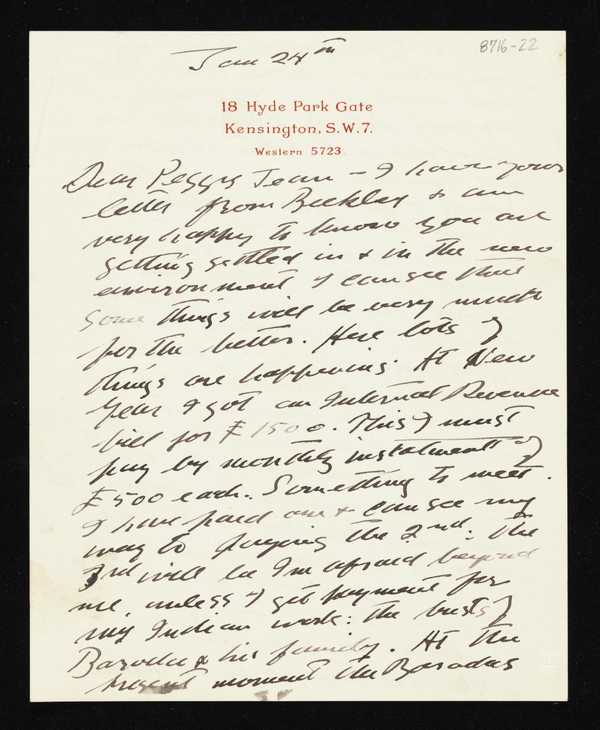 8716-22
Jan 24th
18 Hyde Park Gate
Kensington, S.W.7.
Western 5723
Dear Peggy Jean - I have your
letter from Beckley & am
very happy to know you are
getting settled in & in the new
environment I can see that
some things will be very much
for the better. Here lots of
things are happening. At New
Year I got an Internal Revenue
bill for £1500. This I must
pay by monthly instalments of
£500 each. Something to meet.
I have paid one & can see my
way to paying the 2nd. The
3rd will be I'm afraid beyond
me, unless I get payment for
my Indian work: the busts of
Baroda & his family. At the
present moment the Barodas